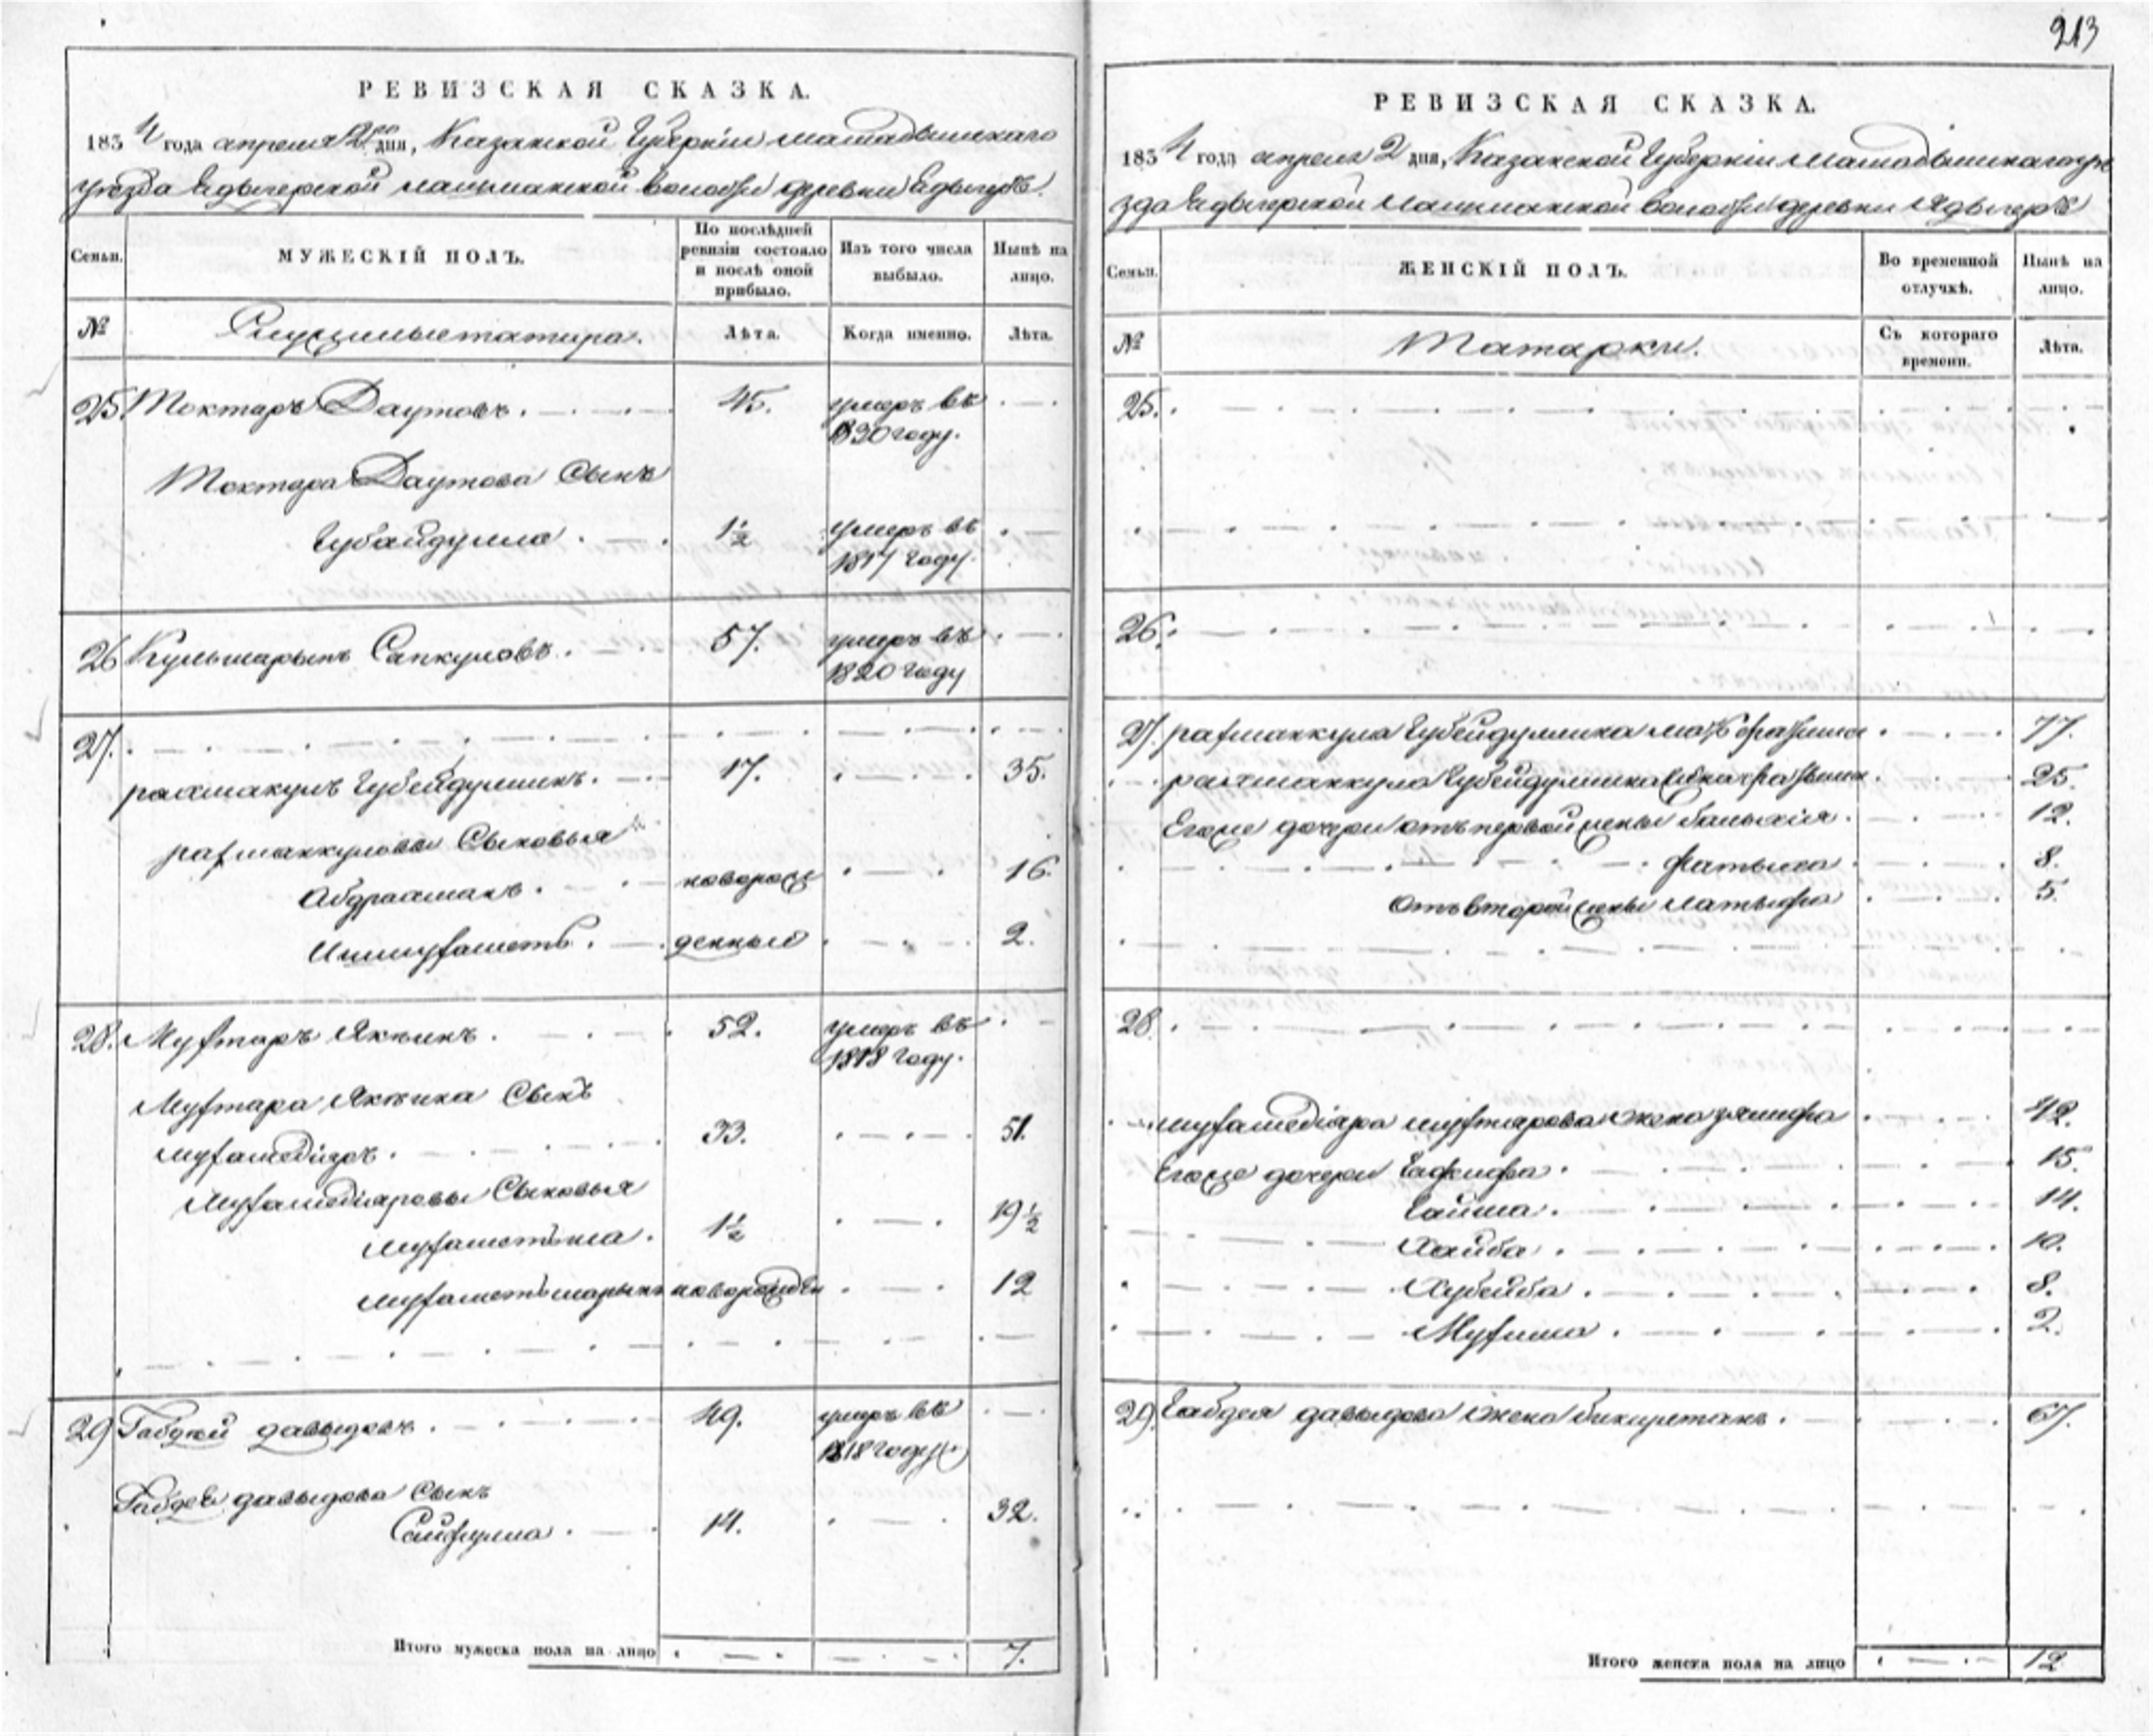 213
РЕВИЗСКАЯ СКАЗКА.
1834 года апреля 2го дня, Казанской Губерніи мамадышскаго
уезда Едыгерской волости деревни Едыгеръ.
Семьи.
МУЖЕСКІЙ ПОЛЪ.
По послѣдней ревизіи состояло и послѣ оной прибыло.
Изъ того числа выбыло.
Нынѣ на лицо.
№
Служилые татара.
Лѣта.
Когда именно.
Лѣта.
25. Моктаръ Даутовъ. 45. умеръ въ
1820 году.
Моктара Даутова Сынъ
Губайдулла. 1½ умеръ въ
1817 году.
26 Кульшарыпъ Сапкуловъ. 57. умеръ въ
1820 году
27.
рахманкулъ Губейдуллинъ. 17. 35.
рахманкуловы Сыновья
Абдрахманъ. новорож 16.
Ишмухаметъ. денный 2.
28. Мухтаръ Якшинъ. 52. умеръ въ
1818 году.
Мухтара Якшина Сынъ
мухамедіяръ. 33. 51.
Мухамедіяровы Сыновья
1½ 19½
мухаметшарыпъ новорожден 12
29 Габдей давыдовъ. 49. умеръ въ
1818 году
Габдея давыдова Сынъ
Сайфулла. 14. 32.
Итого мужеска пола на лицо 7.
РЕВИЗСКАЯ СКАЗКА.
1834 года апреля 2 дня, Казанской Губерніи Мамадышскаго уе
зда Едыгерской волости деревни Едыгеръ
Семьи.
ЖЕНСКІЙ ПОЛЪ.
Во временной отлучкѣ.
Нынѣ на лицо.
№
Татарки.
Съ котораго времени.
Лѣта.
25.
26.
27. рахманкула Губейдуллина мать 77.
рахманкула Губейдуллина 25.
Егоже дочери отъ первой жены 12.
Фатыма 8.
отъ второй жены латыфа 5.
28.
мухамедіяра мухтарова жена зялифа 42.
Егоже дочери Гафифа. 15.
Гайша. 14.
Хайба. 10.
Хубейба. 8.
2.
29. Габдея давыдова жена 67.
Итого женска пола на лицо 12